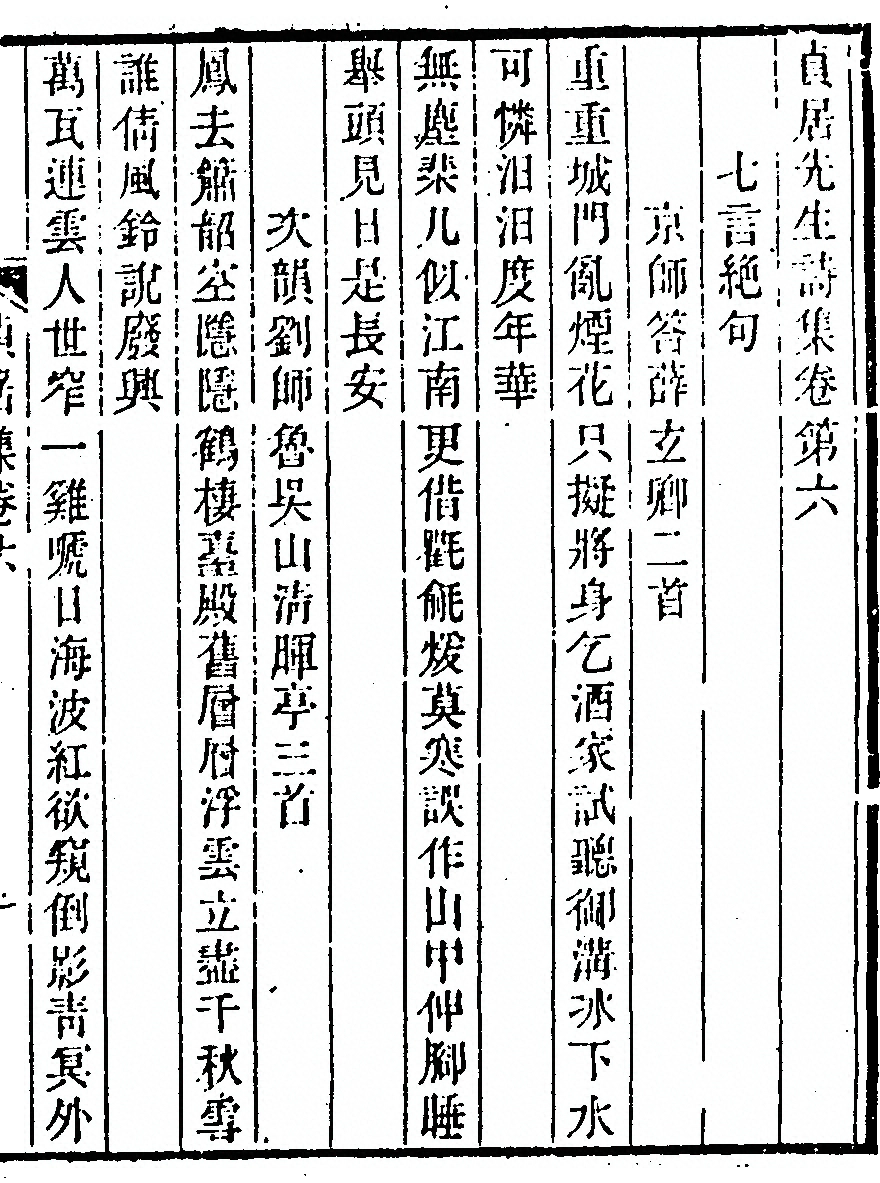 貞居先生詩集卷第六
七言絶句
京師答薛玄卿二首
重重城門亂煙花只擬將身乞酒家試聽御溝冰下水
可憐汩汩度年華
無塵棐几似江南更借氍毹煖莫寒誤作山中伸腳睡
舉頭見日是長安
次韻劉師魯吳山淸暉亭三首
鳳去簫韶空隱隱鶴棲臺殿舊層層浮雲立盡千秋雪
誰倩風鈴說廢興
萬瓦連雲人世窄一雞嗁日海波紅欲窺倒影靑冥外
貞居集卷六